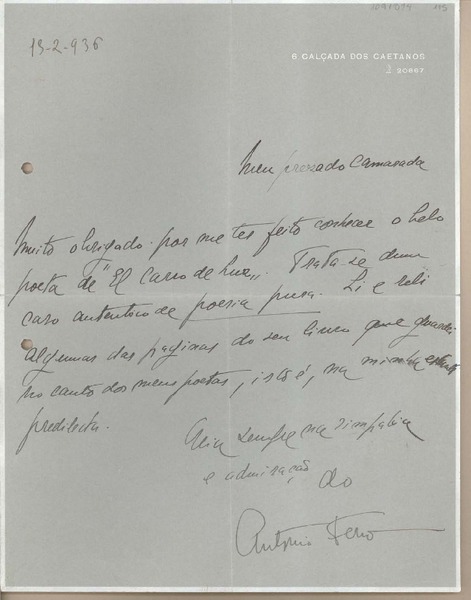 13-2-936
6 CALÇADA DOS CAETANOS
20667
Meu prezado Camarada
Muito obrigado por me ter feito conhecer o belo
poeta de "El Carro de luz". Trata-se dum
caso autentico de poesia pura. Li e reli
algumas das paginas do seu livro que guardei
no canto dos meus poetas, isto é, na minha estante
predilecta.
Creia sempre na simpatia
e admiração do
António Ferro